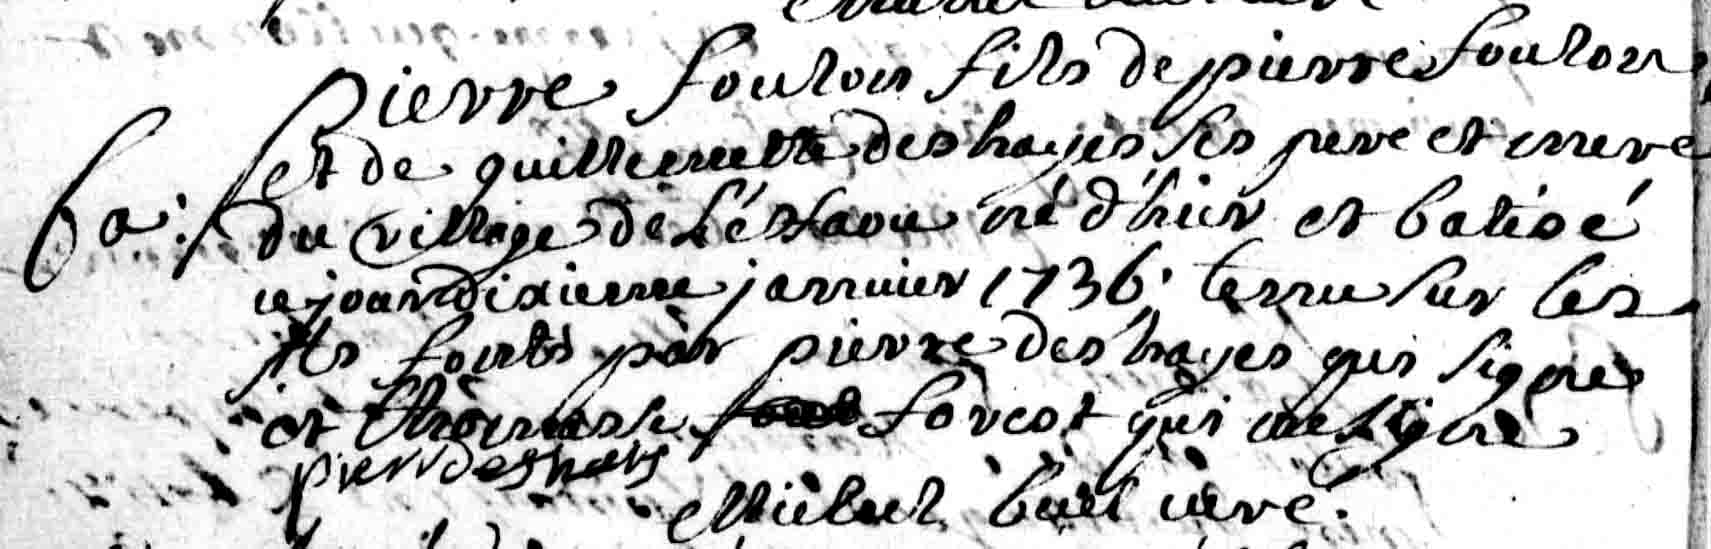 Pierre foulon fils de pierre foulon
ba: et de guillemette deshayes ses pere et mere
du village de né d'hier et batisé
ce jour dixieme janvier 1736. tenu sur les
fonts par pierre deshayes qui signe
et thomasse forest qui ne signe
pierre deshayes
Michel curé.